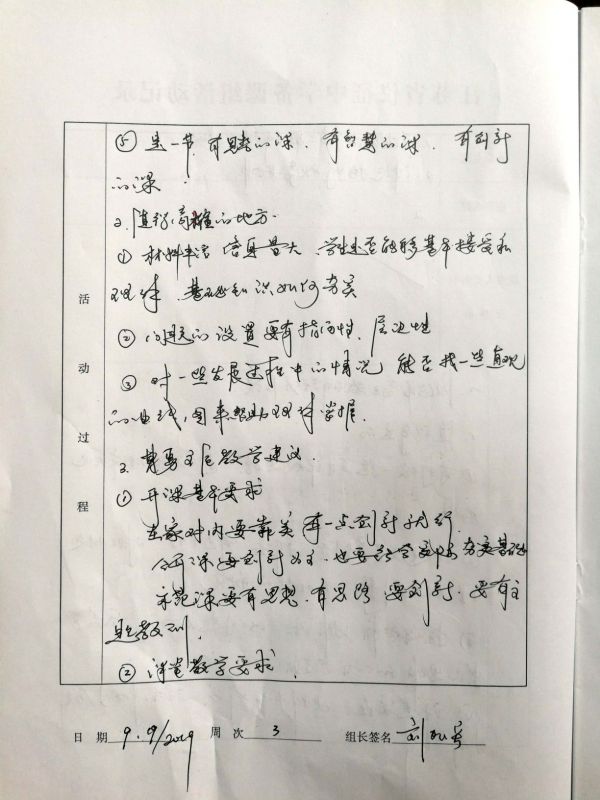 ⑤ 是一节有思想的课、有智慧的课、有创新
的课.
2. 值得商榷的地方.
① 材料丰富 信息量大 学生是否能够基本接受和
理解. 基础知识如何夯实
② 问题的设置要有指向性, 层次性
③ 对一些发展过程中的情况 能否找一些直观
的曲线, 图来帮助理解掌握.
3. 主任教学建议.
① 开课基本要求
在家对内要 有一点创新就行.
公开课要创新为主. 也要 夯实基础
示范课要有思想, 有思路 要创新. 要有主
题
② 教学要求.
活
动
过
程
日 期 9.9/2019 周 次 3 组长签名 刘